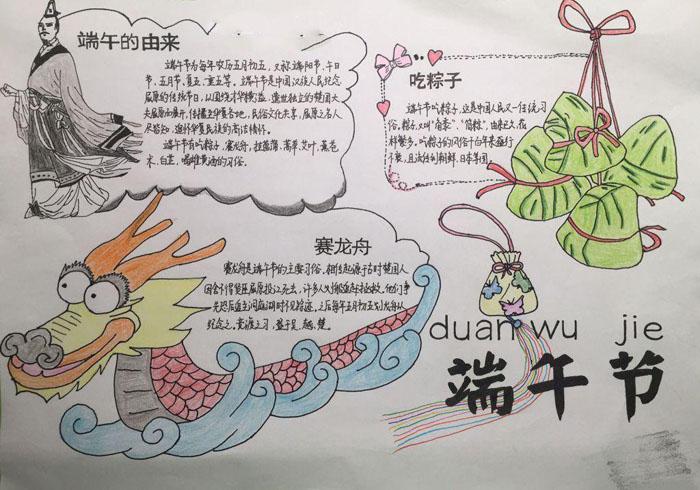 端午的由来
端午节为每年农历五月初五,又称端阳节、午日
节、五月节、夏五、重五等。端午节是中国汉族人民纪念
屈原的传统节日,以围绕才华横溢、遗世独立的楚国大
夫屈原而展开,传播至华夏各地,民俗文化共享,屈原之名人
尽皆知,追怀华夏民族的高洁情怀。
端午节有吃粽子,赛龙舟,挂菖蒲、蒿草、艾叶,薰苍
术、白芷,喝雄黄酒的习俗。
吃粽子
端午节吃粽子,这是中国人民又一传统习
俗。粽子,又叫"角黍"、"筒粽"。由来已久,花
样繁多。吃粽子的风俗千百年来盛行
不衰,且流传到朝鲜、日本等国。
赛龙舟
赛龙舟是端午节的主要习俗。相传起源于古时楚国人
因舍不得贤臣屈原投江死去,许多人划船追赶拯救。他们争
先恐后追至洞庭湖时不见踪迹。之后每年五月初五划龙舟以
纪念之。竞渡之习,盛于吴、越、楚。
duan wu jie
端午节